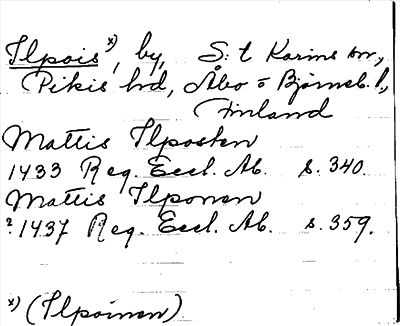 Ilpois x), by, S:t Karins sn,
Pikis hd, Åbo o Björneb. l.,
Finland
Mattis Ilposten
1433 Reg. Eccl. Ab. s. 340.
Mattis Ilponen
? 1437 Reg. Eccl. Ab. s. 359.
x) (Ilpoinen)